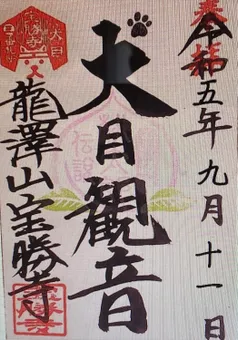 奉拝
令和五年九月十一日
大目観音
伝説
龍澤山宝勝寺